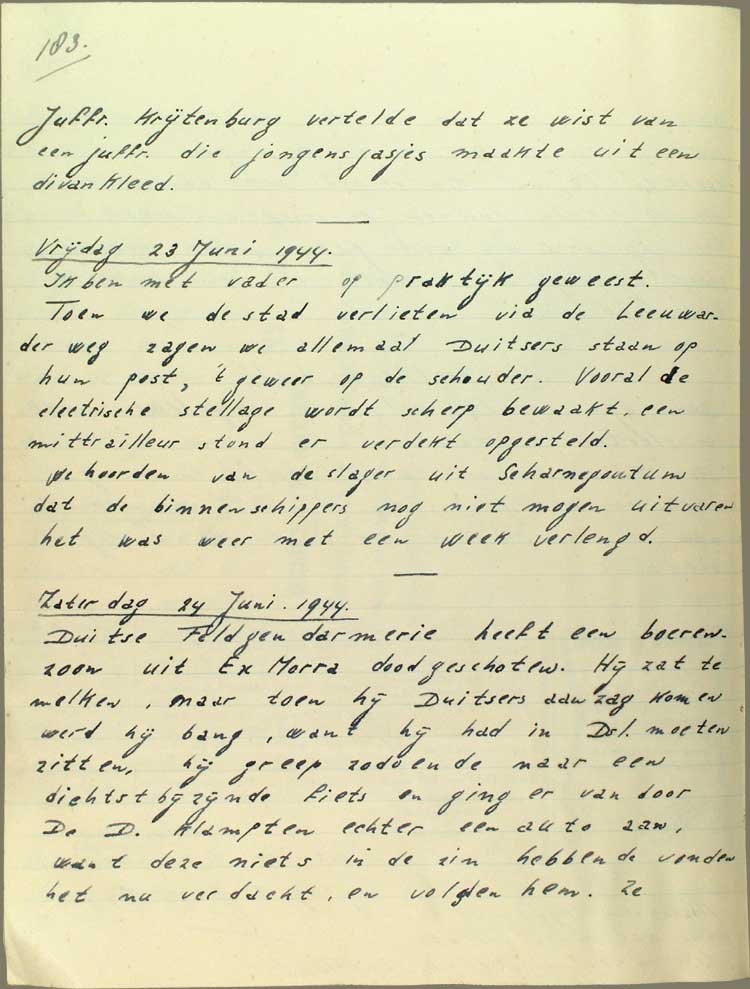 183.
Juffr. Krijtenburg vertelde dat ze wist van
een juffr. die jongensjasjes maakte uit een
divankleed.
Vrijdag 23 Juni 1944.
Ik ben met vader op praktijk geweest.
Toen we de stad verlieten via de Leeuwar-
der weg zagen we allemaal Duitsers staan op
hun post, 't geweer op de schouder. Vooral de
electrische stellage wordt scherp bewaakt, een
mittrailleur stond er verdekt opgesteld.
We hoorden van de slager uit Scharnegoutum
dat de binnenschippers nog niet mogen uitvaren
het was weer met een week verlengd.
Zaterdag 24 Juni. 1944.
Duitse Feldgendarmerie heeft een boeren-
zoon uit Ex Morra doodgeschoten. Hij zat te
melken, maar toen hij Duitsers aan zag komen
werd hij bang, want hij had in Dsl. moeten
zitten, hij greep zodoende naar een
dichtstbijzijnde fiets en ging er van door
De D. klampten echter een auto aan,
want deze niets in de zin hebbende vonden
het nu verdacht, en volgden hem. Ze